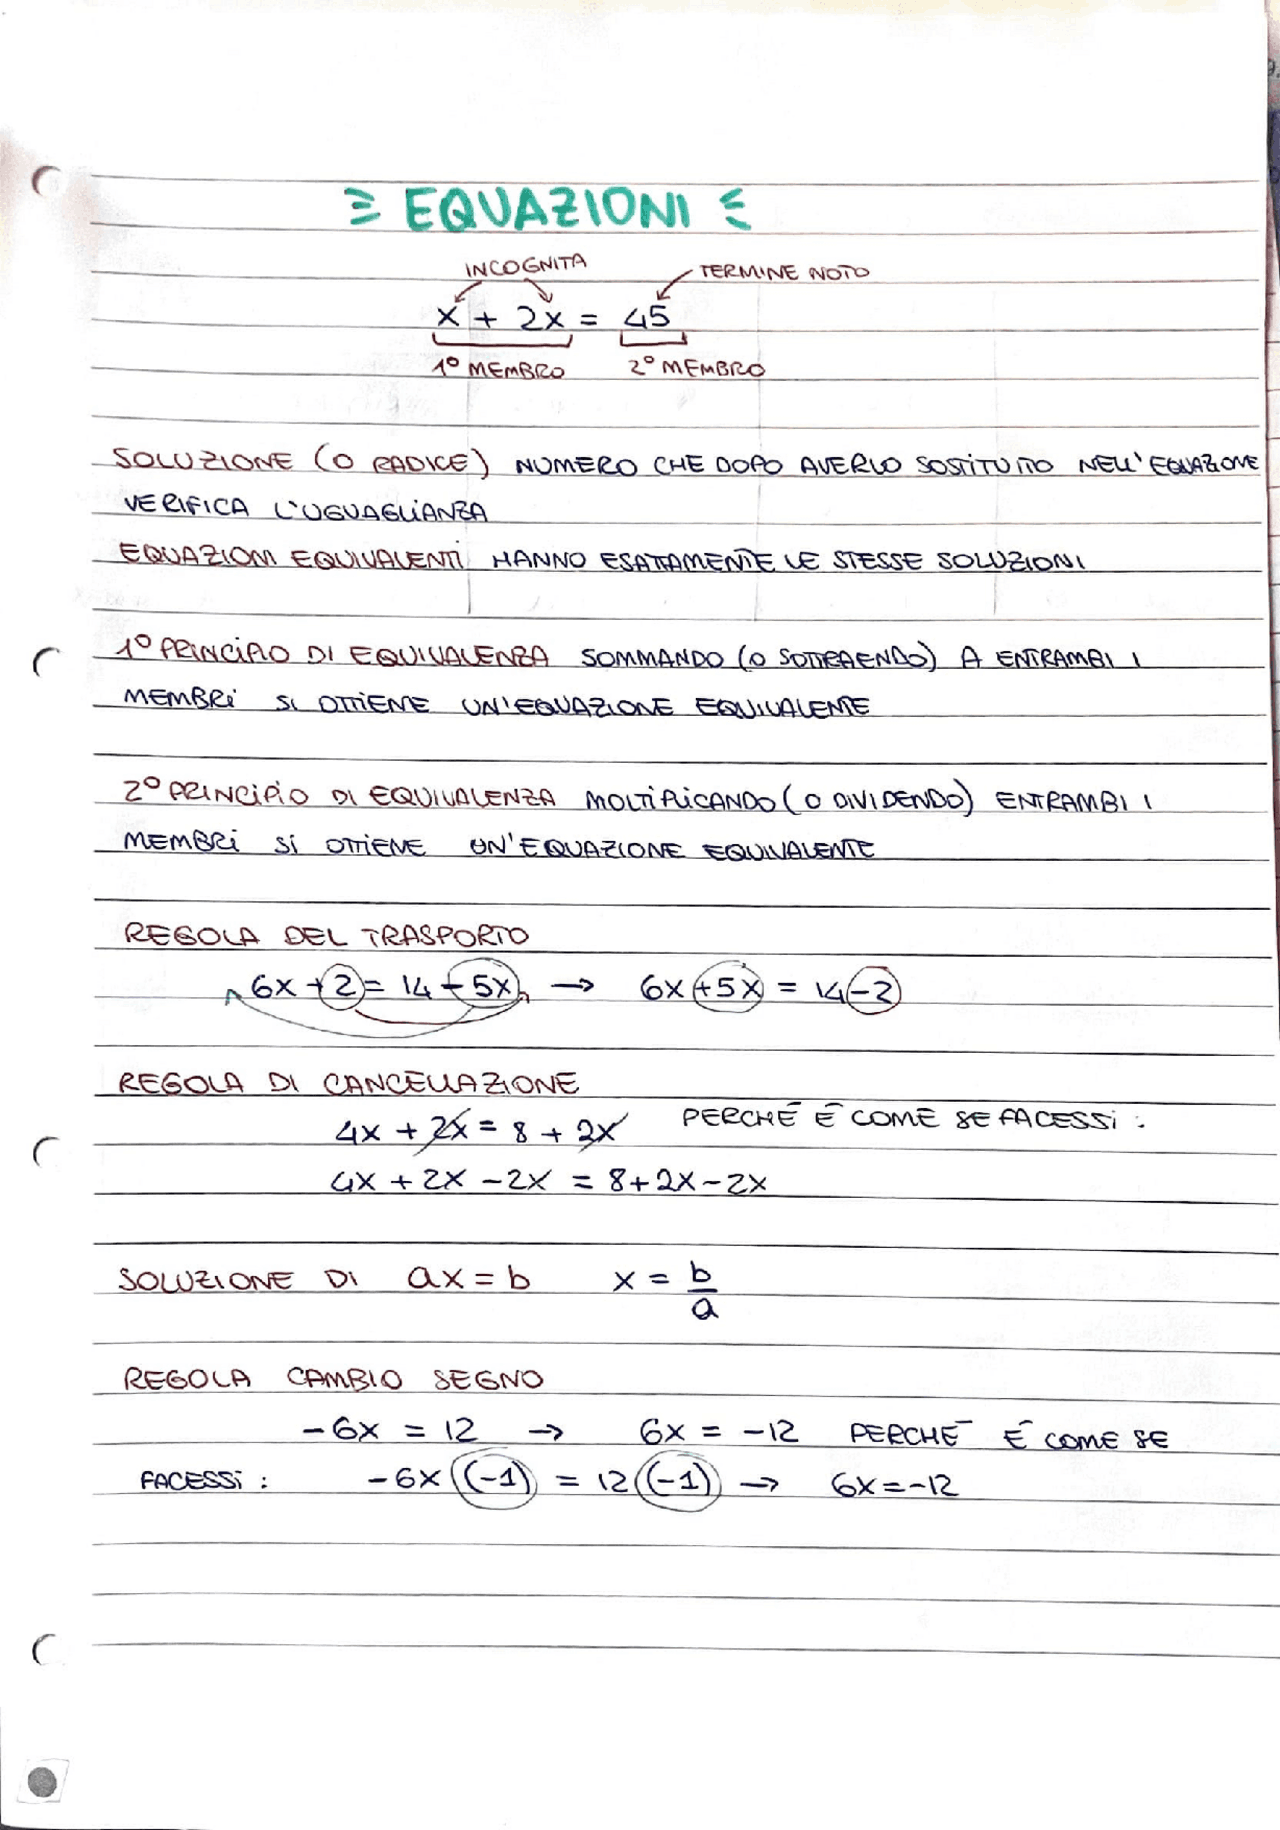 EQUAZIONI
INCOGNITA TERMINE NOTO
x + 2x = 45
1° MEMBRO 2° MEMBRO
SOLUZIONE (O RADICE) NUMERO CHE DOPO AVERLO SOSTITUITO NELL'EQUAZIONE
VERIFICA L'UGUAGLIANZA
EQUAZIONI EQUIVALENTI HANNO ESATTAMENTE LE STESSE SOLUZIONI
1° PRINCIPIO DI EQUIVALENZA SOMMANDO (O SOTTRAENDO) A ENTRAMBI I
MEMBRI SI OTTIENE UN'EQUAZIONE EQUIVALENTE
2° PRINCIPIO DI EQUIVALENZA MOLTIPLICANDO (O DIVIDENDO) ENTRAMBI I
MEMBRI SI OTTIENE UN'EQUAZIONE EQUIVALENTE
REGOLA DEL TRASPORTO
6x + 2 = 14 - 5x → 6x + 5x = 14 - 2
REGOLA DI CANCELLAZIONE
4x + 2x = 8 + 2x PERCHÉ È COME SE FACESSI :
4x + 2x - 2x = 8 + 2x - 2x
SOLUZIONE DI ax = b x = b/a
REGOLA CAMBIO SEGNO
-6x = 12 → 6x = -12 PERCHÉ È COME SE
FACESSI : -6x (-1) = 12 (-1) → 6x = -12